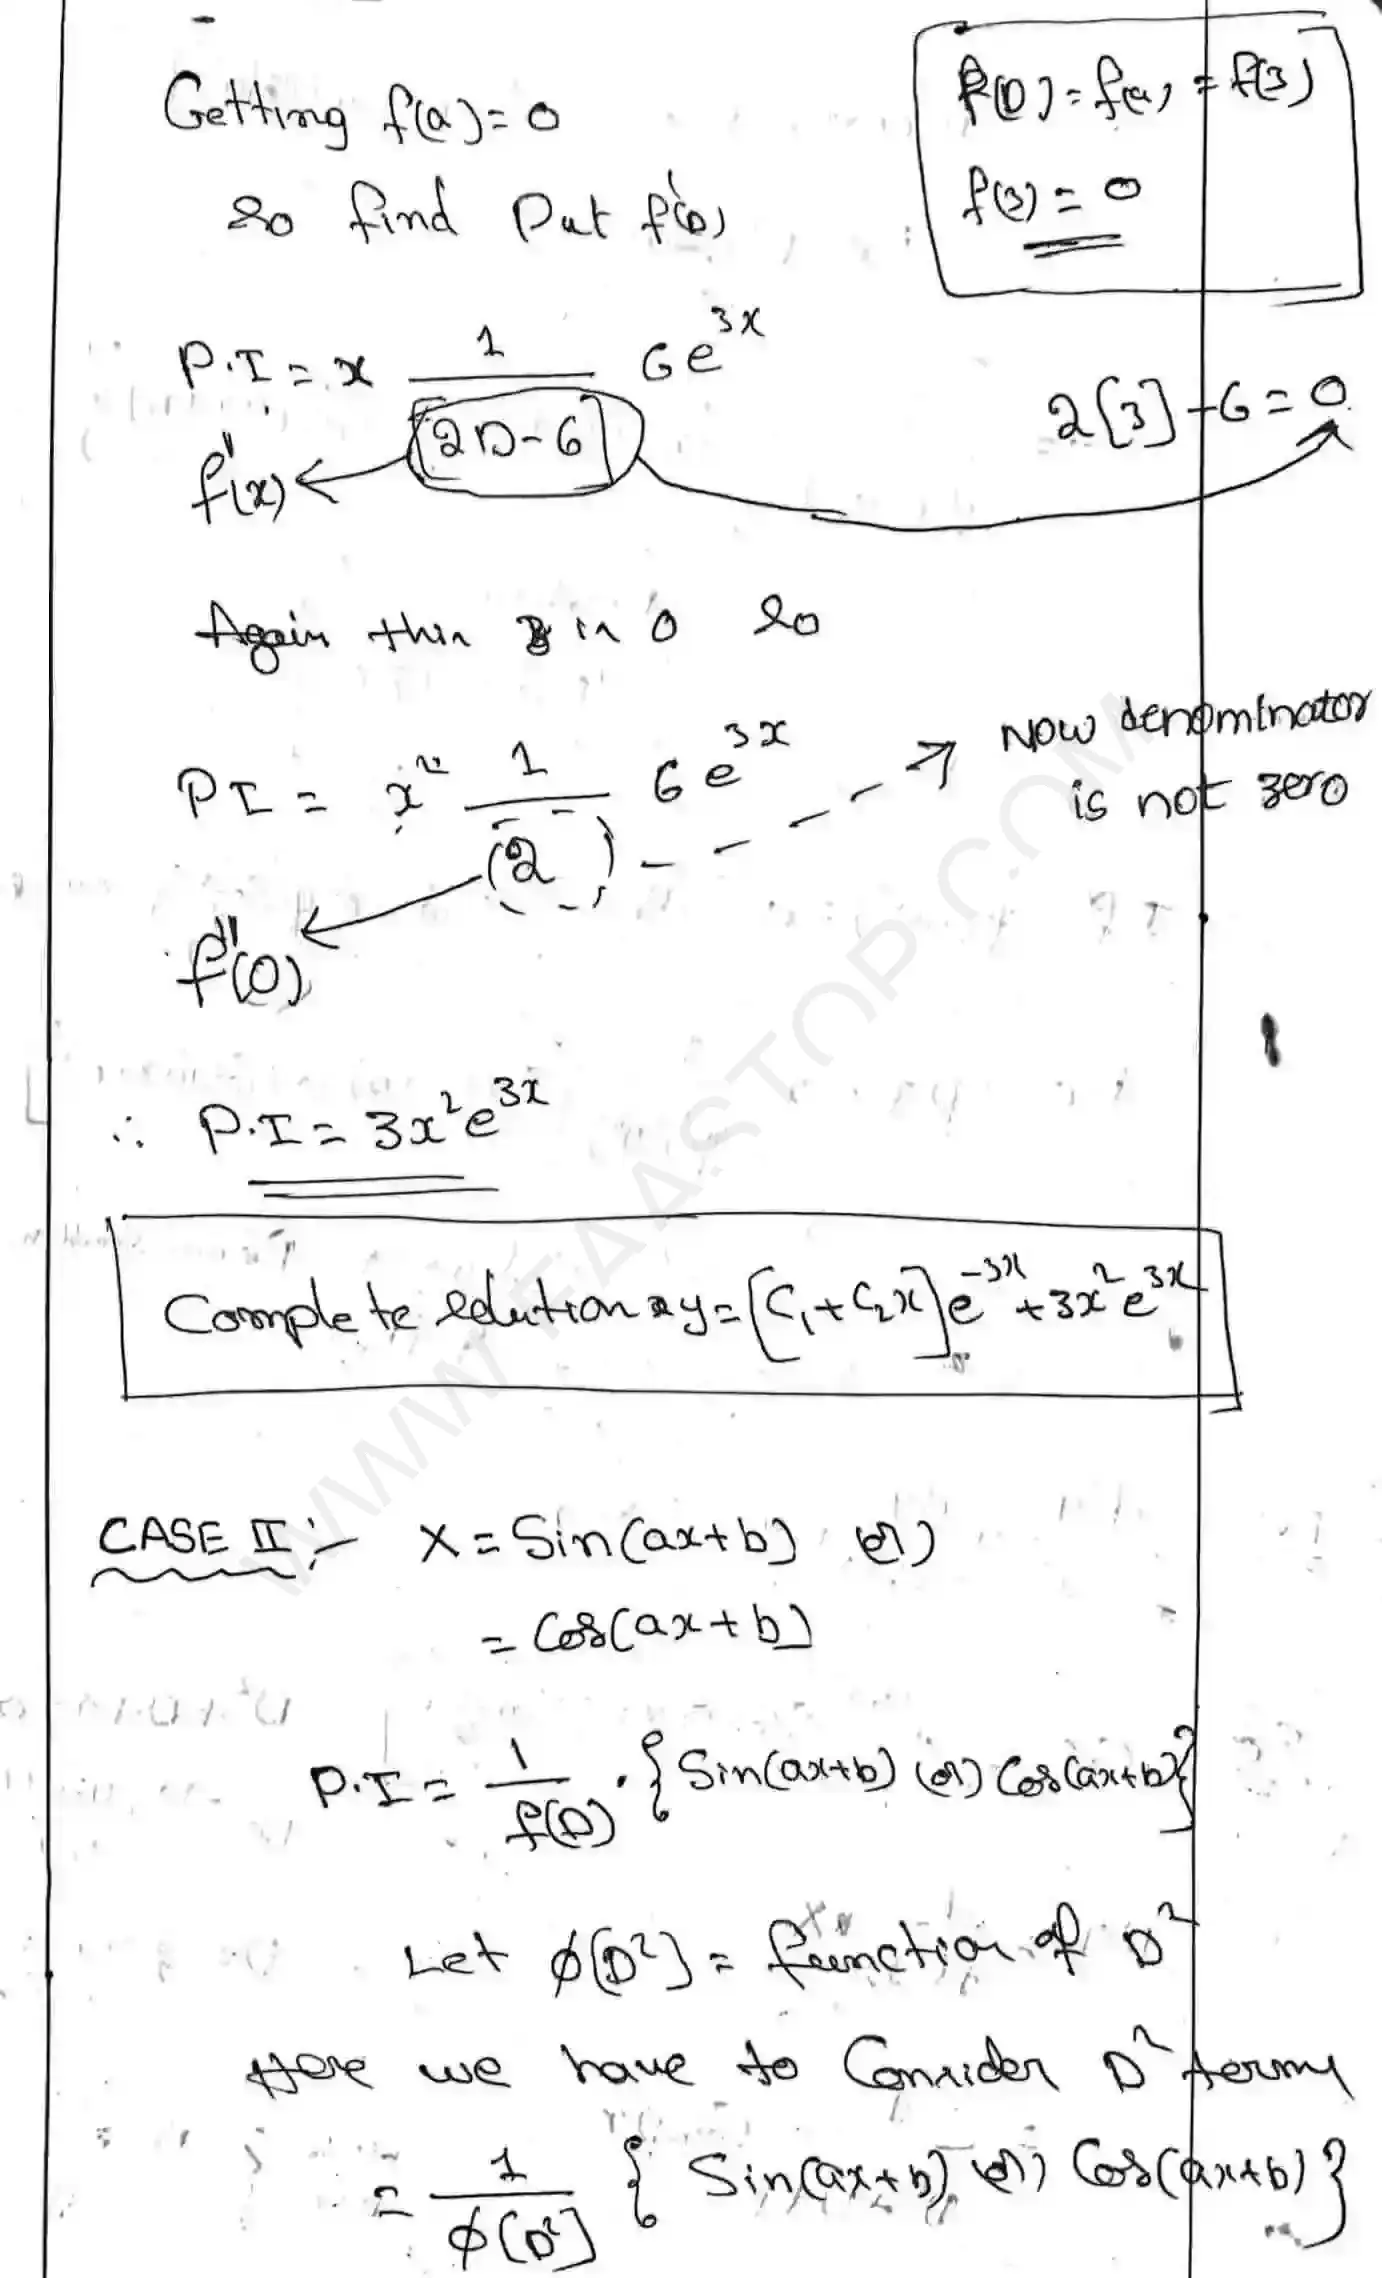 Getting f(a)=0
f(D)=f(a)=f(3)
f(3)=0
so find put f'(D)
P.I = x 1/[2D-6] 6e^3x
2[3]-6=0
f'(x)
Again this is 0 so
PI = x² 1/(2) 6e^3x
Now denominator
is not zero
f''(D)
∴ P.I = 3x²e^3x
Complete solution y=[C₁+C₂x]e^-3x+3x²e^3x
CASE II :- X = Sin(ax+b) (or)
= Cos(ax+b)
P.I = 1/f(D) . {Sin(ax+b) (or) Cos(ax+b)}
Let φ[D²] = function of D²
Here we have to Consider D² terms
= 1/φ[D²] {Sin(ax+b) (or) Cos(ax+b)}
WWW.FAASTOP.COM